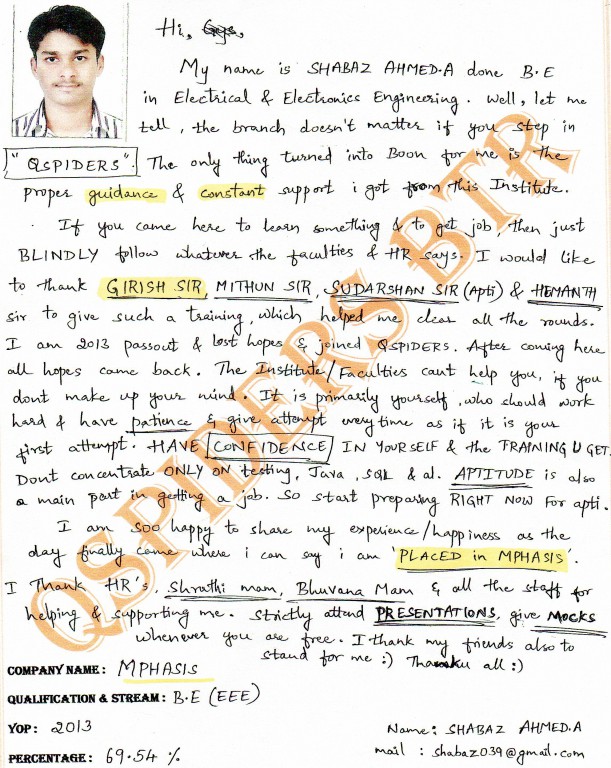 Hi,
My name is SHABAZ AHMED.A done B.E
in Electrical & Electronics Engineering. Well, let me
tell, the branch doesn't matter if you step in
"QSPIDERS". The only thing turned into Boon for me is the
proper guidance & constant support i got from this Institute.
If you came here to learn something & to get job, then just
BLINDLY follow whatever the faculties & HR says. I would like
to thank GIRISH SIR, MITHUN SIR, SUDARSHAN SIR (Apti) & HEMANTH
sir to give such a training, which helped me clear all the rounds.
I am 2013 passout & lost hopes & joined QSPIDERS. After coming here
all hopes came back. The Institute/Faculties cant help you, if you
dont make up your mind. It is primarily yourself, who should work
hard & have patience & give attempt everytime as if it is your
first attempt. HAVE CONFIDENCE IN YOURSELF & the TRAINING U GET.
Dont concentrate ONLY ON testing, Java, SQL & al. APTITUDE is also
a main part in getting a job. So start preparing RIGHT NOW for apti.
I am soo happy to share my experience/happiness as the
day finally came where i can say i am 'PLACED in MPHASIS'.
I Thank HR's, Shruthi mam, Bhuvana Mam & all the staff for
helping & supporting me. Strictly attend PRESENTATIONS, give MOCKS
whenever you are free. I thank my friends also to
stand for me :) Thanku all :)
COMPANY NAME: MPHASIS
QUALIFICATION & STREAM: B.E (EEE)
YOP: 2013
PERCENTAGE: 69.54 %
Name: SHABAZ AHMED.A
mail : shabaz039@gmail.com
QSPIDERS BTR